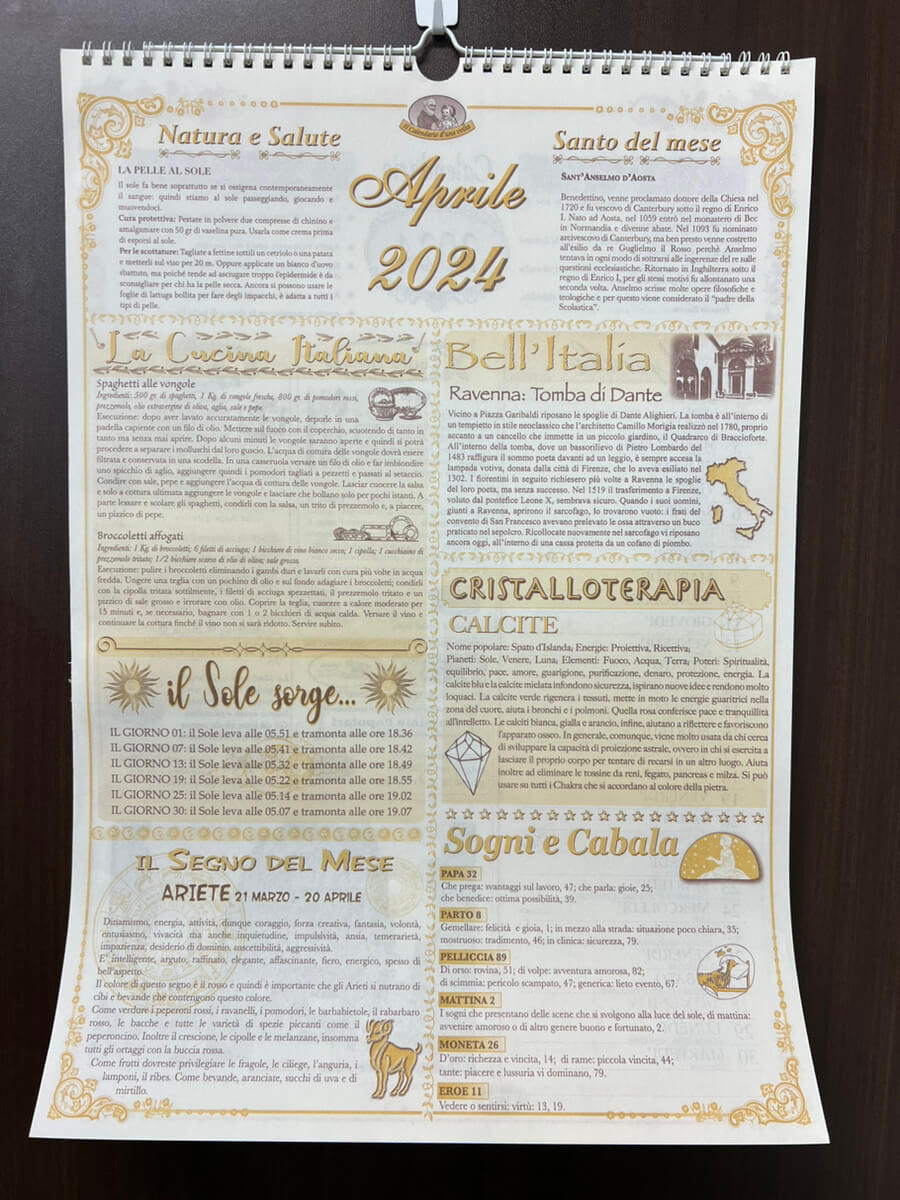 Il Calendario d'una volta
Natura e Salute
LA PELLE AL SOLE
Il sole fa bene soprattutto se si ossigena contemporaneamente
il sangue: quindi stiamo al sole passeggiando, giocando e
muovendoci.
Cura protettiva: Pestate in polvere due compresse di chinino e
amalgamare con 50 gr di vaselina pura. Usarla come crema prima
di esporsi al sole.
Per le scottature: Tagliate a fettine sottili un cetriolo o una patata
e metterli sul viso per 20 m. Oppure applicate un bianco d'uovo
sbattuto, ma poiché tende ad asciugare troppo l'epidermide è da
sconsigliare per chi ha la pelle secca. Ancora si possono usare le
foglie di lattuga bollita per fare degli impacchi, è adatta a tutti i
tipi di pelle.
Aprile
2024
Santo del mese
SANT'ANSELMO D'AOSTA
Benedettino, venne proclamato dottore della Chiesa nel
1720 e fu vescovo di Canterbury sotto il regno di Enrico
I. Nato ad Aosta, nel 1059 entrò nel monastero di Bec
in Normandia e divenne abate. Nel 1093 fu nominato
arcivescovo di Canterbury, ma ben presto venne costretto
all'esilio da re Guglielmo il Rosso perchè Anselmo
tentava in ogni modo di sottrarsi alle ingerenze del re sulle
questioni ecclesiastiche. Ritornato in Inghilterra sotto il
regno di Enrico I, per gli stessi motivi fu allontanato una
seconda volta. Anselmo scrisse molte opere filosofiche e
teologiche e per questo viene considerato il "padre della
Scolastica".
La Cucina Italiana
Spaghetti alle vongole
Ingredienti: 500 gr. di spaghetti, 1 Kg. di vongole fresche, 800 gr. di pomodori rossi,
prezzemolo, olio extravergine di oliva, aglio, sale e pepe.
Esecuzione: dopo aver lavato accuratamente le vongole, deporle in una
padella capiente con un filo di olio. Mettere sul fuoco con il coperchio, scuotendo di tanto in
tanto ma senza mai aprire. Dopo alcuni minuti le vongole saranno aperte e quindi si potrà
procedere a separare i molluschi dal loro guscio. L'acqua di cottura delle vongole dovrà essere
filtrata e conservata in una scodella. In una casseruola versare un filo di olio e far imbiondire
uno spicchio di aglio, aggiungere quindi i pomodori tagliati a pezzetti e passati al setaccio.
Condire con sale, pepe e aggiungere l'acqua di cottura delle vongole. Lasciar cuocere la salsa
e solo a cottura ultimata aggiungere le vongole e lasciare che bollano solo per pochi istanti. A
parte lessare e scolare gli spaghetti, condirli con la salsa, un trito di prezzemolo e, a piacere,
un pizzico di pepe.
Broccoletti affogati
Ingredienti: 1 Kg. di broccoletti; 6 filetti di acciuga; 1 bicchiere di vino bianco secco; 1 cipolla; 1 cucchiaino di
prezzemolo tritato; 1/2 bicchiere scarso di olio di oliva; sale grosso.
Esecuzione: pulire i broccoletti eliminando i gambi duri e lavarli con cura più volte in acqua
fredda. Ungere una teglia con un pochino di olio e sul fondo adagiare i broccoletti; condirli
con la cipolla tritata sottilmente, i filetti di acciuga spezzettati, il prezzemolo tritato e un
pizzico di sale grosso ed irrorare con olio. Coprire la teglia, cuocere a calore moderato per
15 minuti e, se necessario, bagnare con 1 o 2 bicchieri di acqua calda. Versare il vino e
continuare la cottura finché il vino non si sarà ridotto. Servire subito.
il Sole sorge...
IL GIORNO 01: il Sole leva alle 05.51 e tramonta alle ore 18.36
IL GIORNO 07: il Sole leva alle 05.41 e tramonta alle ore 18.42
IL GIORNO 13: il Sole leva alle 05.32 e tramonta alle ore 18.49
IL GIORNO 19: il Sole leva alle 05.22 e tramonta alle ore 18.55
IL GIORNO 25: il Sole leva alle 05.14 e tramonta alle ore 19.02
IL GIORNO 30: il Sole leva alle 05.07 e tramonta alle ore 19.07
IL SEGNO DEL MESE
ARIETE 21 MARZO - 20 APRILE
Dinamismo, energia, attività, dunque coraggio, forza creativa, fantasia, volontà,
entusiasmo, vivacità ma anche inquietudine, impulsività, ansia, temerarietà,
impazienza, desiderio di dominio, suscettibilità, aggressività.
E' intelligente, arguto, raffinato, elegante, affascinante, fiero, energico, spesso di
bell'aspetto.
Il colore di questo segno è il rosso e quindi è importante che gli Arieti si nutrano di
cibi e bevande che contengono questo colore.
Come verdure i peperoni rossi, i ravanelli, i pomodori, le barbabietole, il rabarbaro
rosso, le bacche e tutte le varietà di spezie piccanti come il
peperoncino. Inoltre il crescione, le cipolle e le melanzane, insomma
tutti gli ortaggi con la buccia rossa.
Come frutti dovreste privilegiare le fragole, le ciliege, l'anguria, i
lamponi, il ribes. Come bevande, aranciate, succhi di uva e di
mirtillo.
Bell'Italia
Ravenna: Tomba di Dante
Vicino a Piazza Garibaldi riposano le spoglie di Dante Alighieri. La tomba è all'interno di
un tempietto in stile neoclassico che l'architetto Camillo Morigia realizzò nel 1780, proprio
accanto a un cancello che immette in un piccolo giardino, il Quadrarco di Braccioforte.
All'interno della tomba, dove un bassorilievo di Pietro Lombardo del
1483 raffigura il sommo poeta davanti ad un leggio, è sempre accesa la
lampada votiva, donata dalla città di Firenze, che lo aveva esiliato nel
1302. I fiorentini in seguito richiesero più volte a Ravenna le spoglie
del loro poeta, ma senza successo. Nel 1519 il trasferimento a Firenze,
voluto dal pontefice Leone X, sembrava sicuro. Quando i suoi uomini,
giunti a Ravenna, aprirono il sarcofago, lo trovarono vuoto: i frati del
convento di San Francesco avevano prelevato le ossa attraverso un buco
praticato nel sepolcro. Ricollocate nuovamente nel sarcofago vi riposano
ancora oggi, all'interno di una cassa protetta da un cofano di piombo.
CRISTALLOTERAPIA
CALCITE
Nome popolare: Spato d'Islanda; Energie: Proiettiva, Ricettiva;
Pianeti: Sole, Venere, Luna; Elementi: Fuoco, Acqua, Terra; Poteri: Spiritualità,
equilibrio, pace, amore, guarigione, purificazione, denaro, protezione, energia. La
calcite blu e la calcite mielata infondono sicurezza, ispirano nuove idee e rendono molto
loquaci. La calcite verde rigenera i tessuti, mette in moto le energie guaritrici nella
zona del cuore, aiuta i bronchi e i polmoni. Quella rosa conferisce pace e tranquillità
all'intelletto. Le calciti bianca, gialla e arancio, infine, aiutano a riflettere e favoriscono
l'apparato osseo. In generale, comunque, viene molto usata da chi cerca
di sviluppare la capacità di proiezione astrale, ovvero in chi si esercita a
lasciare il proprio corpo per tentare di recarsi in un altro luogo. Aiuta
inoltre ad eliminare le tossine da reni, fegato, pancreas e milza. Si può
usare su tutti i Chakra che si accordano al colore della pietra.
Sogni e Cabala
PAPA 32
Che prega: svantaggi sul lavoro, 47; che parla: gioie, 25;
che benedice: ottima possibilità, 39.
PARTO 8
Gemellare: felicità e gioia, 1; in mezzo alla strada: situazione poco chiara, 35;
mostruoso: tradimento, 46; in clinica: sicurezza, 79.
PELLICCIA 89
Di orso: rovina, 51; di volpe: avventura amorosa, 82;
di scimmia: pericolo scampato, 47; generica: lieto evento, 67.
MATTINA 2
I sogni che presentano delle scene che si svolgono alla luce del sole, di mattina:
avvenire amoroso o di altro genere buono e fortunato, 2.
MONETA 26
D'oro: richezza e vincita, 14; di rame: piccola vincita, 44;
tante: piacere e lussuria vi dominano, 79.
EROE 11
Vedere o sentirsi: virtù: 13, 19.